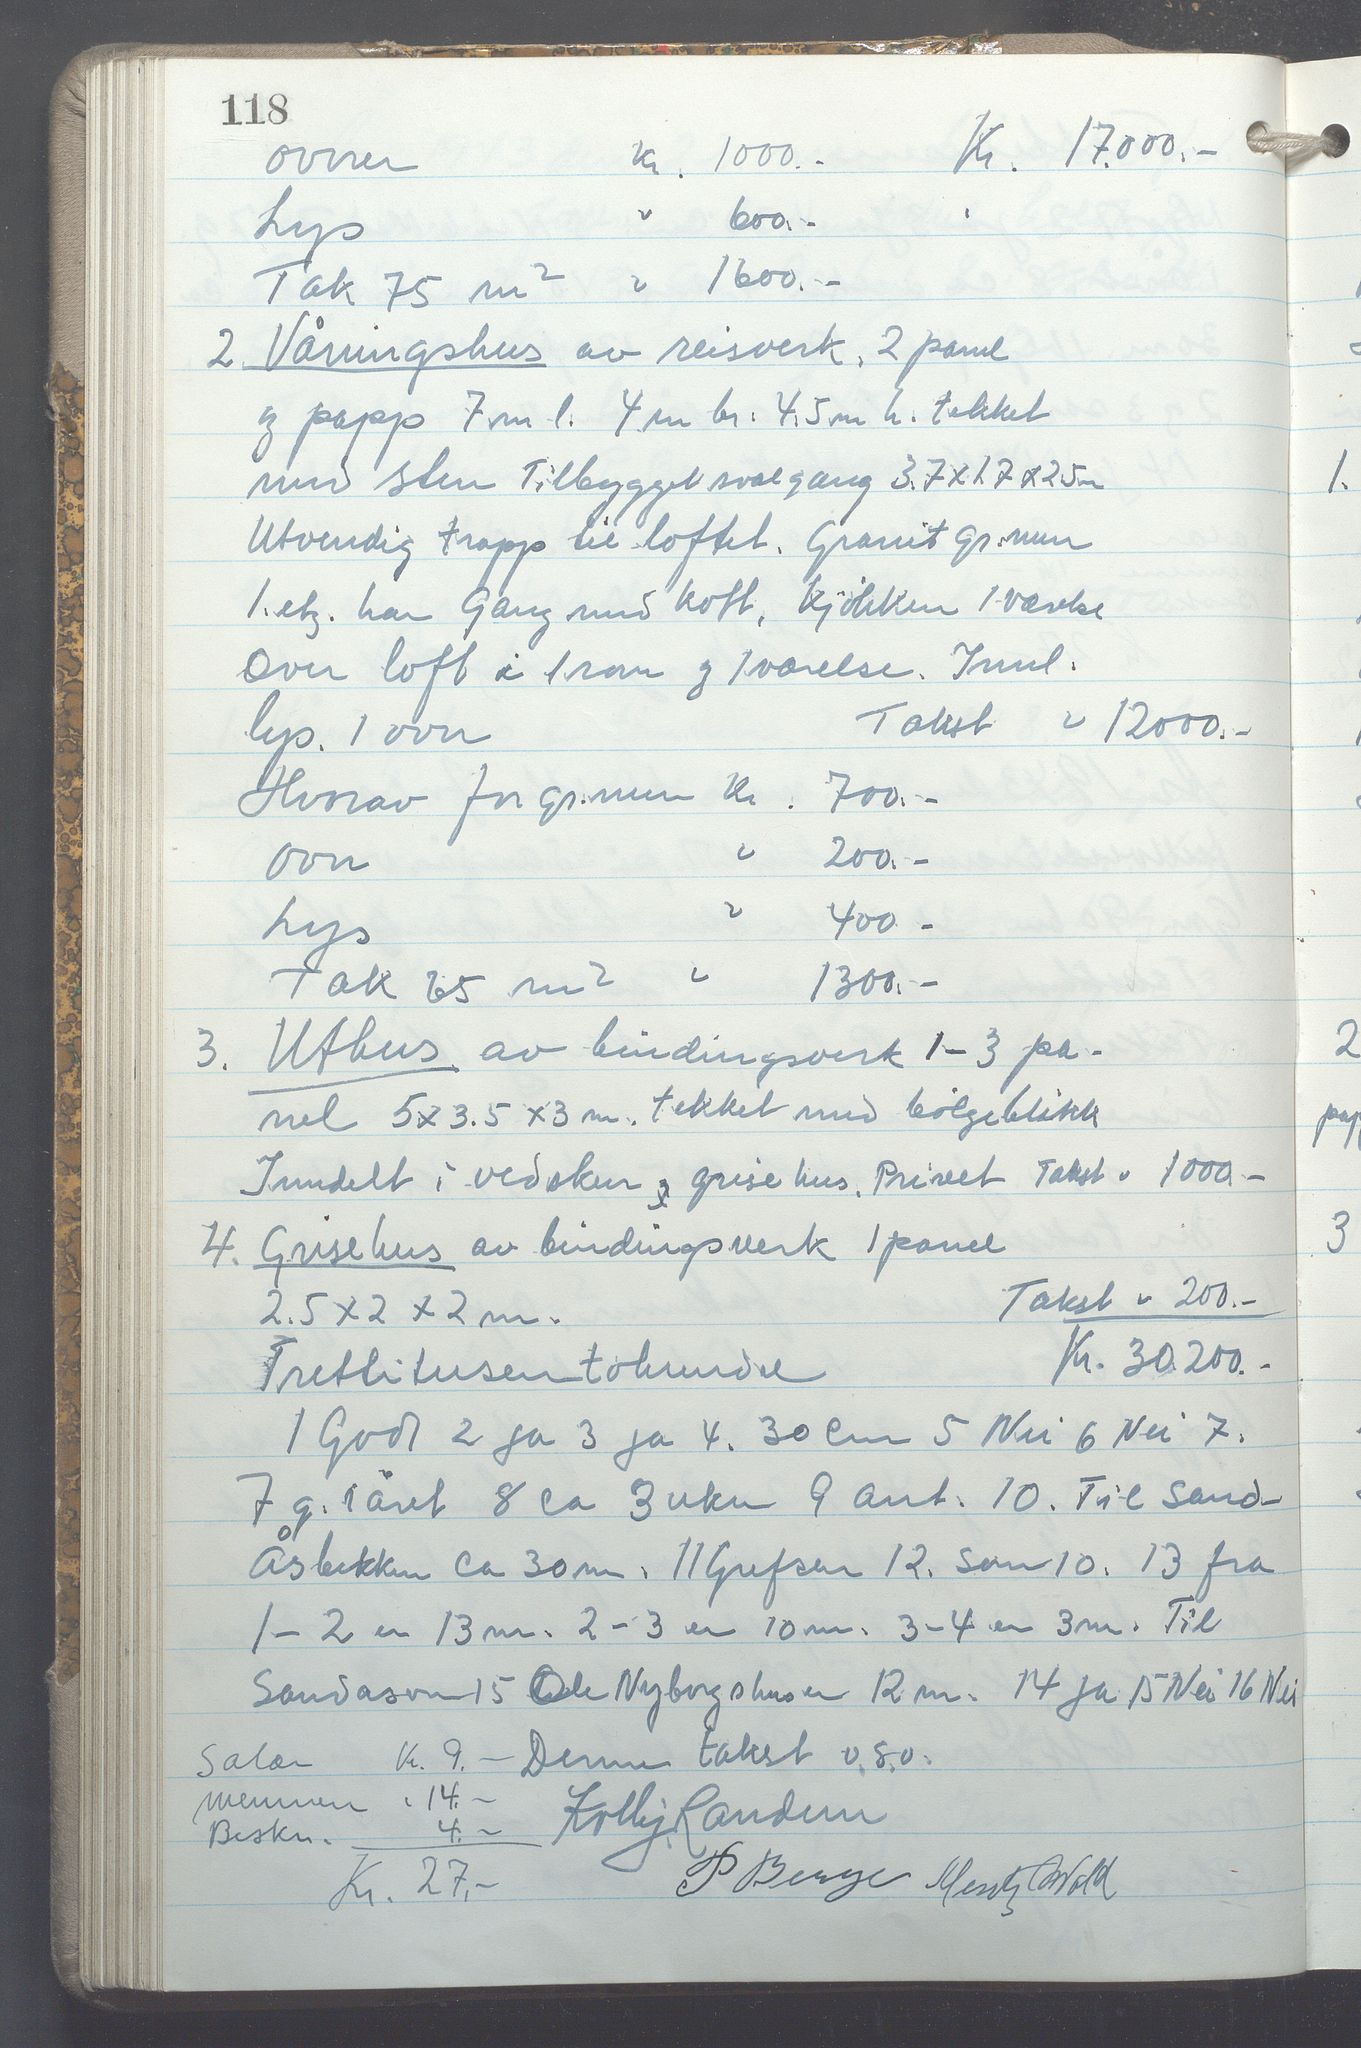 118
ovner kr. 1000.- Kr. 17.000.-
Lys " 600.-
Tak 75 m² " 1600.-
2. Våningshus av reisverk, 2 panel
og papp 7 m l. 4 m br. 4.5 m h. tekket
med sten Tilbygget svalgang 3.7x1.7x2.5 m
Utvendig trapp til loftet. Granit gr.mur
1. etg. har Gang med kott, kjökken 1 værelse
Over loft i 1 rom og 1 værelse. Innl.
lys. 1 ovn Takst " 12000.-
Hvorav for gr.mur kr. 700.-
ovn " 200.-
Lys " 400.-
Tak 65 m² " 1300.-
3. Uthus av bindingsverk 1-3 pa-
nel 5x3.5x3 m. tekket med bölgeblikk
Inndelt i vedskur og grisehus. Privet Takst " 1000.-
4. Grisehus av bindingsverk 1 panel
2.5x2x2 m. Takst " 200.-
Trettitusentohundre Kr. 30.200.-
1 Godt 2 ja 3 ja 4. 30 cm 5 Nei 6 Nei 7.
7 g. i året 8 ca 3 uker 9 ant. 10. Til Sand-
Åsbekken ca 30 m. 11 Grefsen 12. Som 10. 13 fra
1-2 er 13 m. 2-3 er 10 m. 3-4 er 3 m. Til
Sandåsvn 15 Ole Nyborgshus er 12 m. 14 ja 15 Nei 16 Nei
Salær kr. 9.- Denne takst o.s.v.
mennen " 14.- Kolbj. Randem
Beskr. 4.-
Kr. 27.- P Berge Mentz Wold